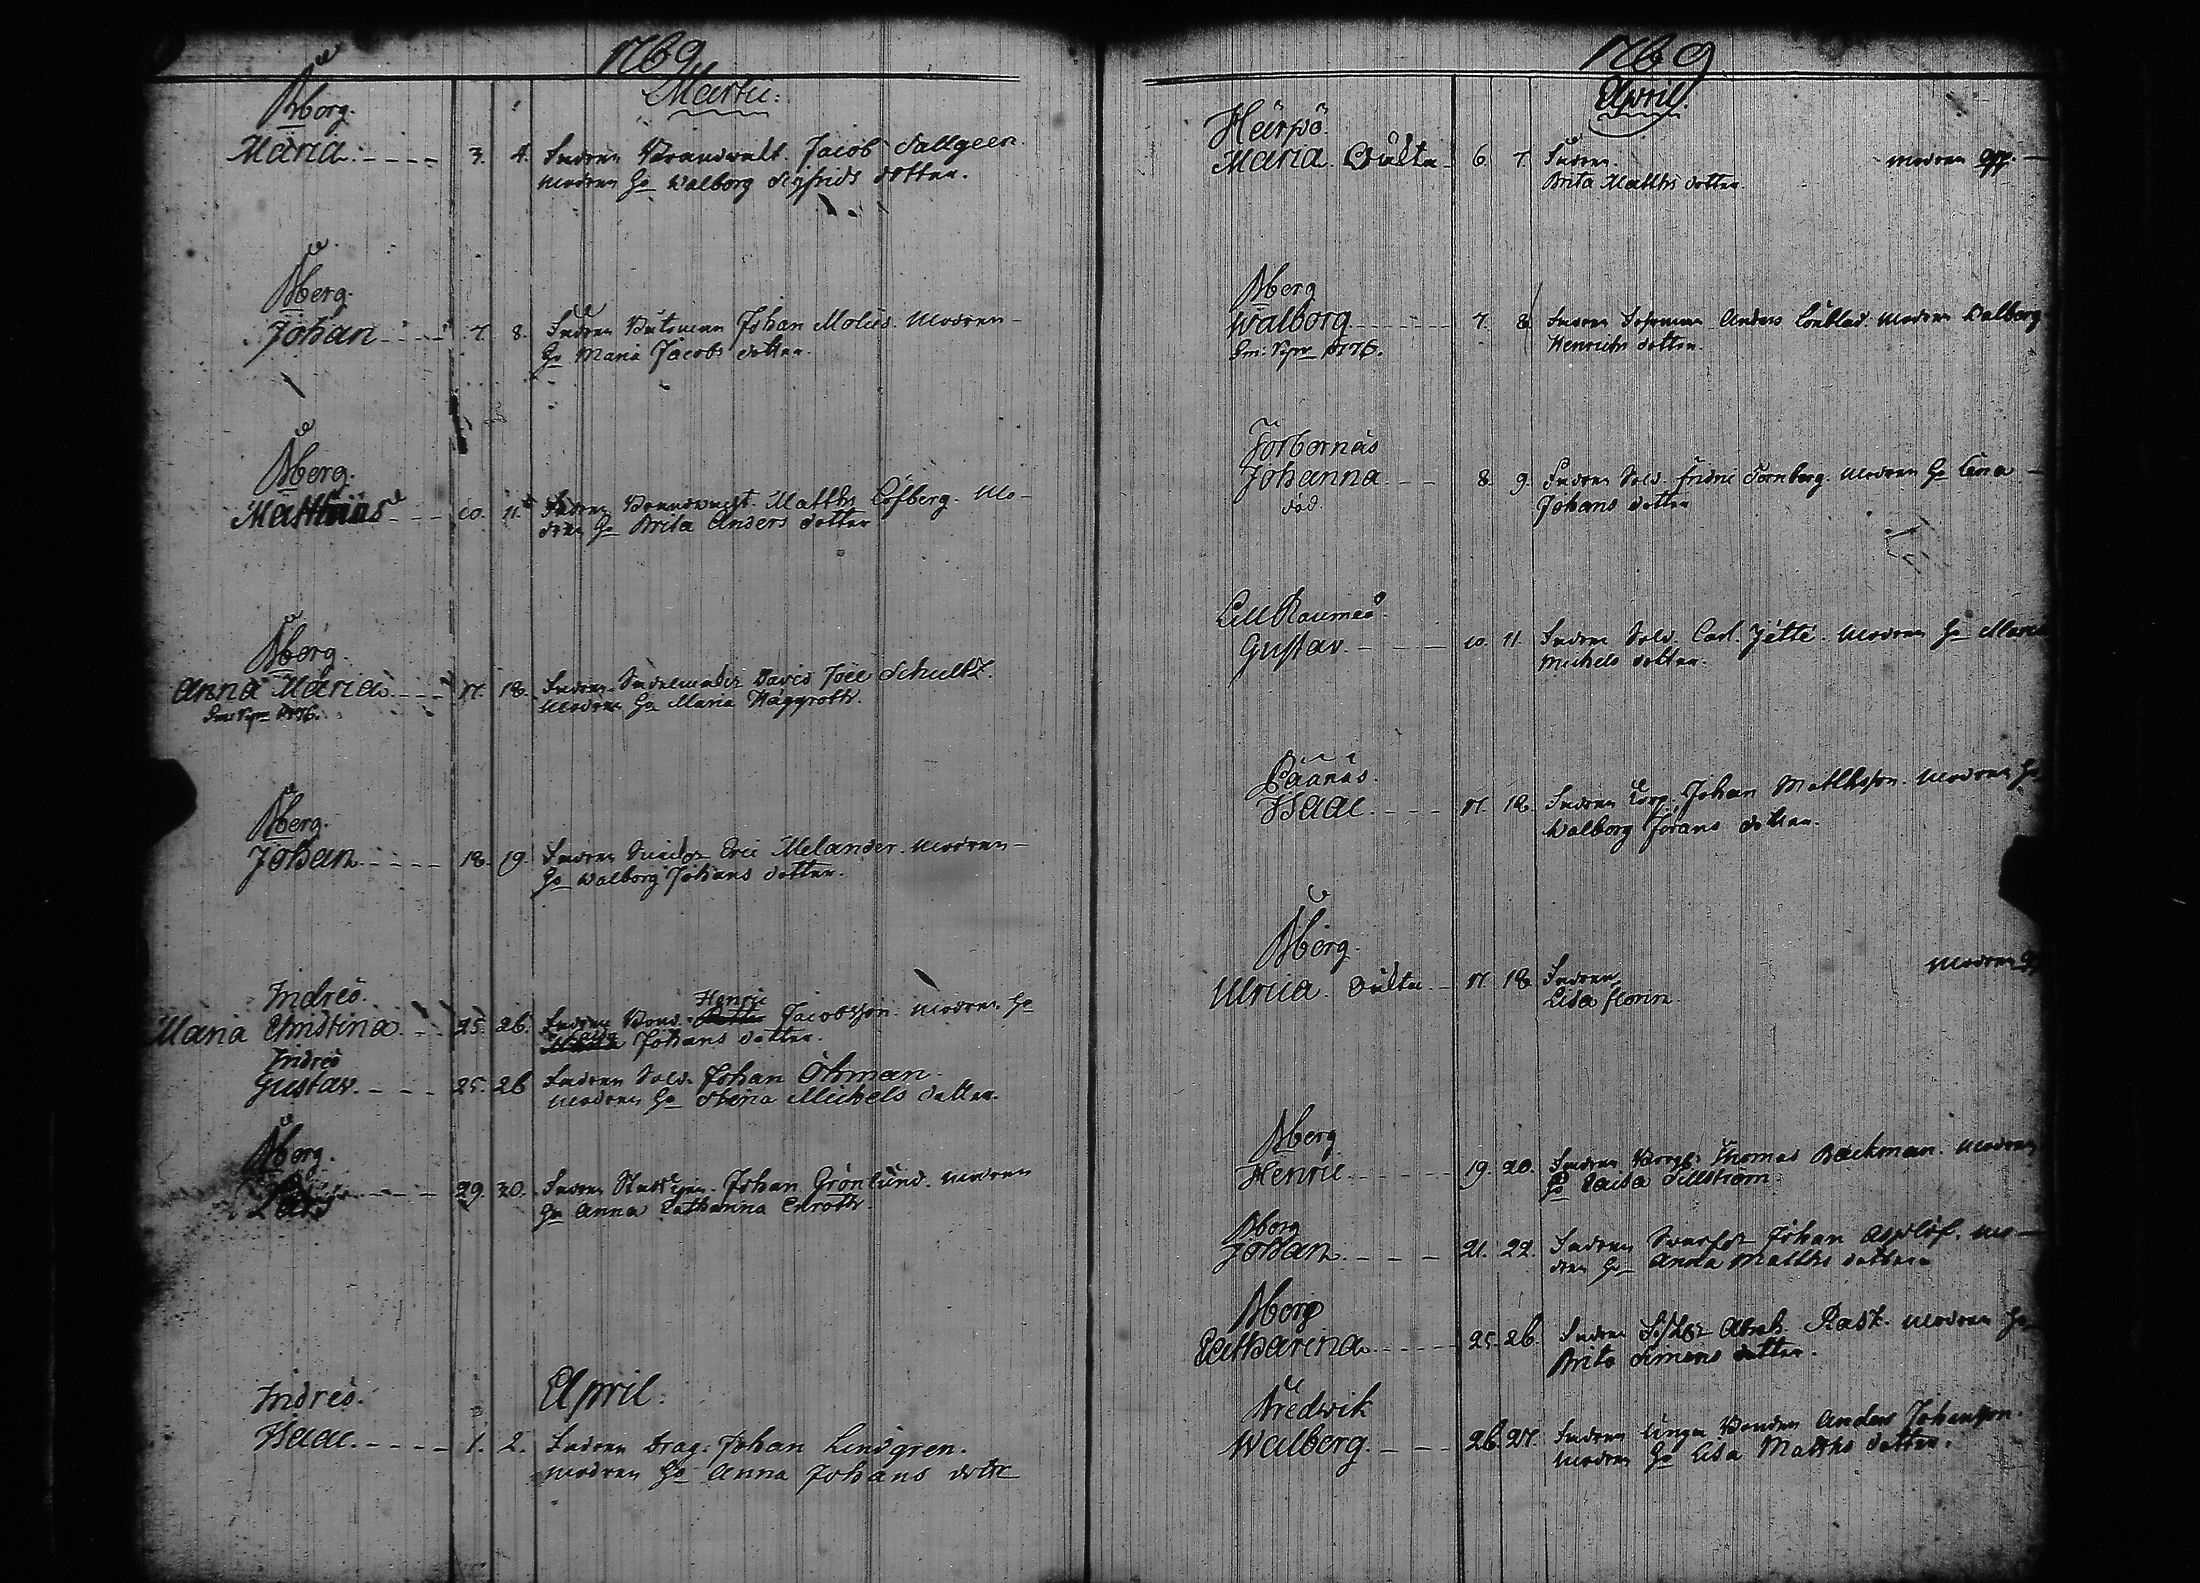 1769
Martii:
Bborg.
Maria. 3. 4. Fadren Brandwakt. Jacob Sallgeen.
modren Ho Walborg Sigfrids dotter.
Bberg.
Johan 7. 8. Fadren Båtsman Johan Molius. Modren
Ho Maria Jacobs dotter.
Bberg.
Matthias 10. 11. Fadren Brandwacht. Matths Löfberg. Mo-
dren Ho Brita Anders dotter
Bberg.
Anna Maria 17. 18. Fadren Sadelmakr David Joel Schultz.
1776. modren Ho Maria Häggroth.
Bberg.
Johan 18. 19. Fadren Eric Melander. modren
Ho Walborg Johans dotter.
Indreö.
Henric
Maria Christina. 25. 26. Fadren Bond. Jacobsson. modren Ho
Johans dotter.
Indreö
Gustav. 25. 26 Fadren Sold. Johan Öhman.
modren Ho Stina Michels dotter.
Bberg.
Lars 29. 30. Fadren Johan Grönlund. modren
Ho Anna Catharina Enroth.
April.
Indreö.
Isaac. 1. 2. Fadren Drag: Johan Lindgren.
modren Ho Anna Johans dottr
1769
April.
Heinö.
Maria. Oäkta 6. 7. Fadren. modren
Brita Matths dotter
Bberg
Walborg. 7. 8. Fadren Anders Modren Walborg
1776. Henrichs dotter.
Torbornäs
Johanna 8. 9. Fadren Sold. Fridric Tornberg. Modren Ho Lena
död. Johans dotter
Lill Raumeö.
Gustav. 10. 11. Fadren Sold. Carl. Jätte. Modren Ho Maria
Michels dotter.
Läänäs.
Isaac. 17. 18. Fadren Corp. Johan Mathsson. modren Ho
Walborg Jörans dotter.
Bberg.
Ulrica. Oäkta 17. 18. Fadren modren
Lisa Florin.
Bberg
Henric 19. 20. Fadren Borgr: Thomas Backman. modren
Ho Caisa Sillström.
Bborg
Johan 21. 22. Fadren Johan Asplöf. mo-
dren Ho Anna Matths dotter
Bberg
Catharina 25. 26. Fadren Abrah. Rask. modren Ho
Brita Simons dotter.
Tredwik
Walberg. 26. 27. Fadren unga Bonden Anders Johansson.
modren Ho Lisa Matths dotter.